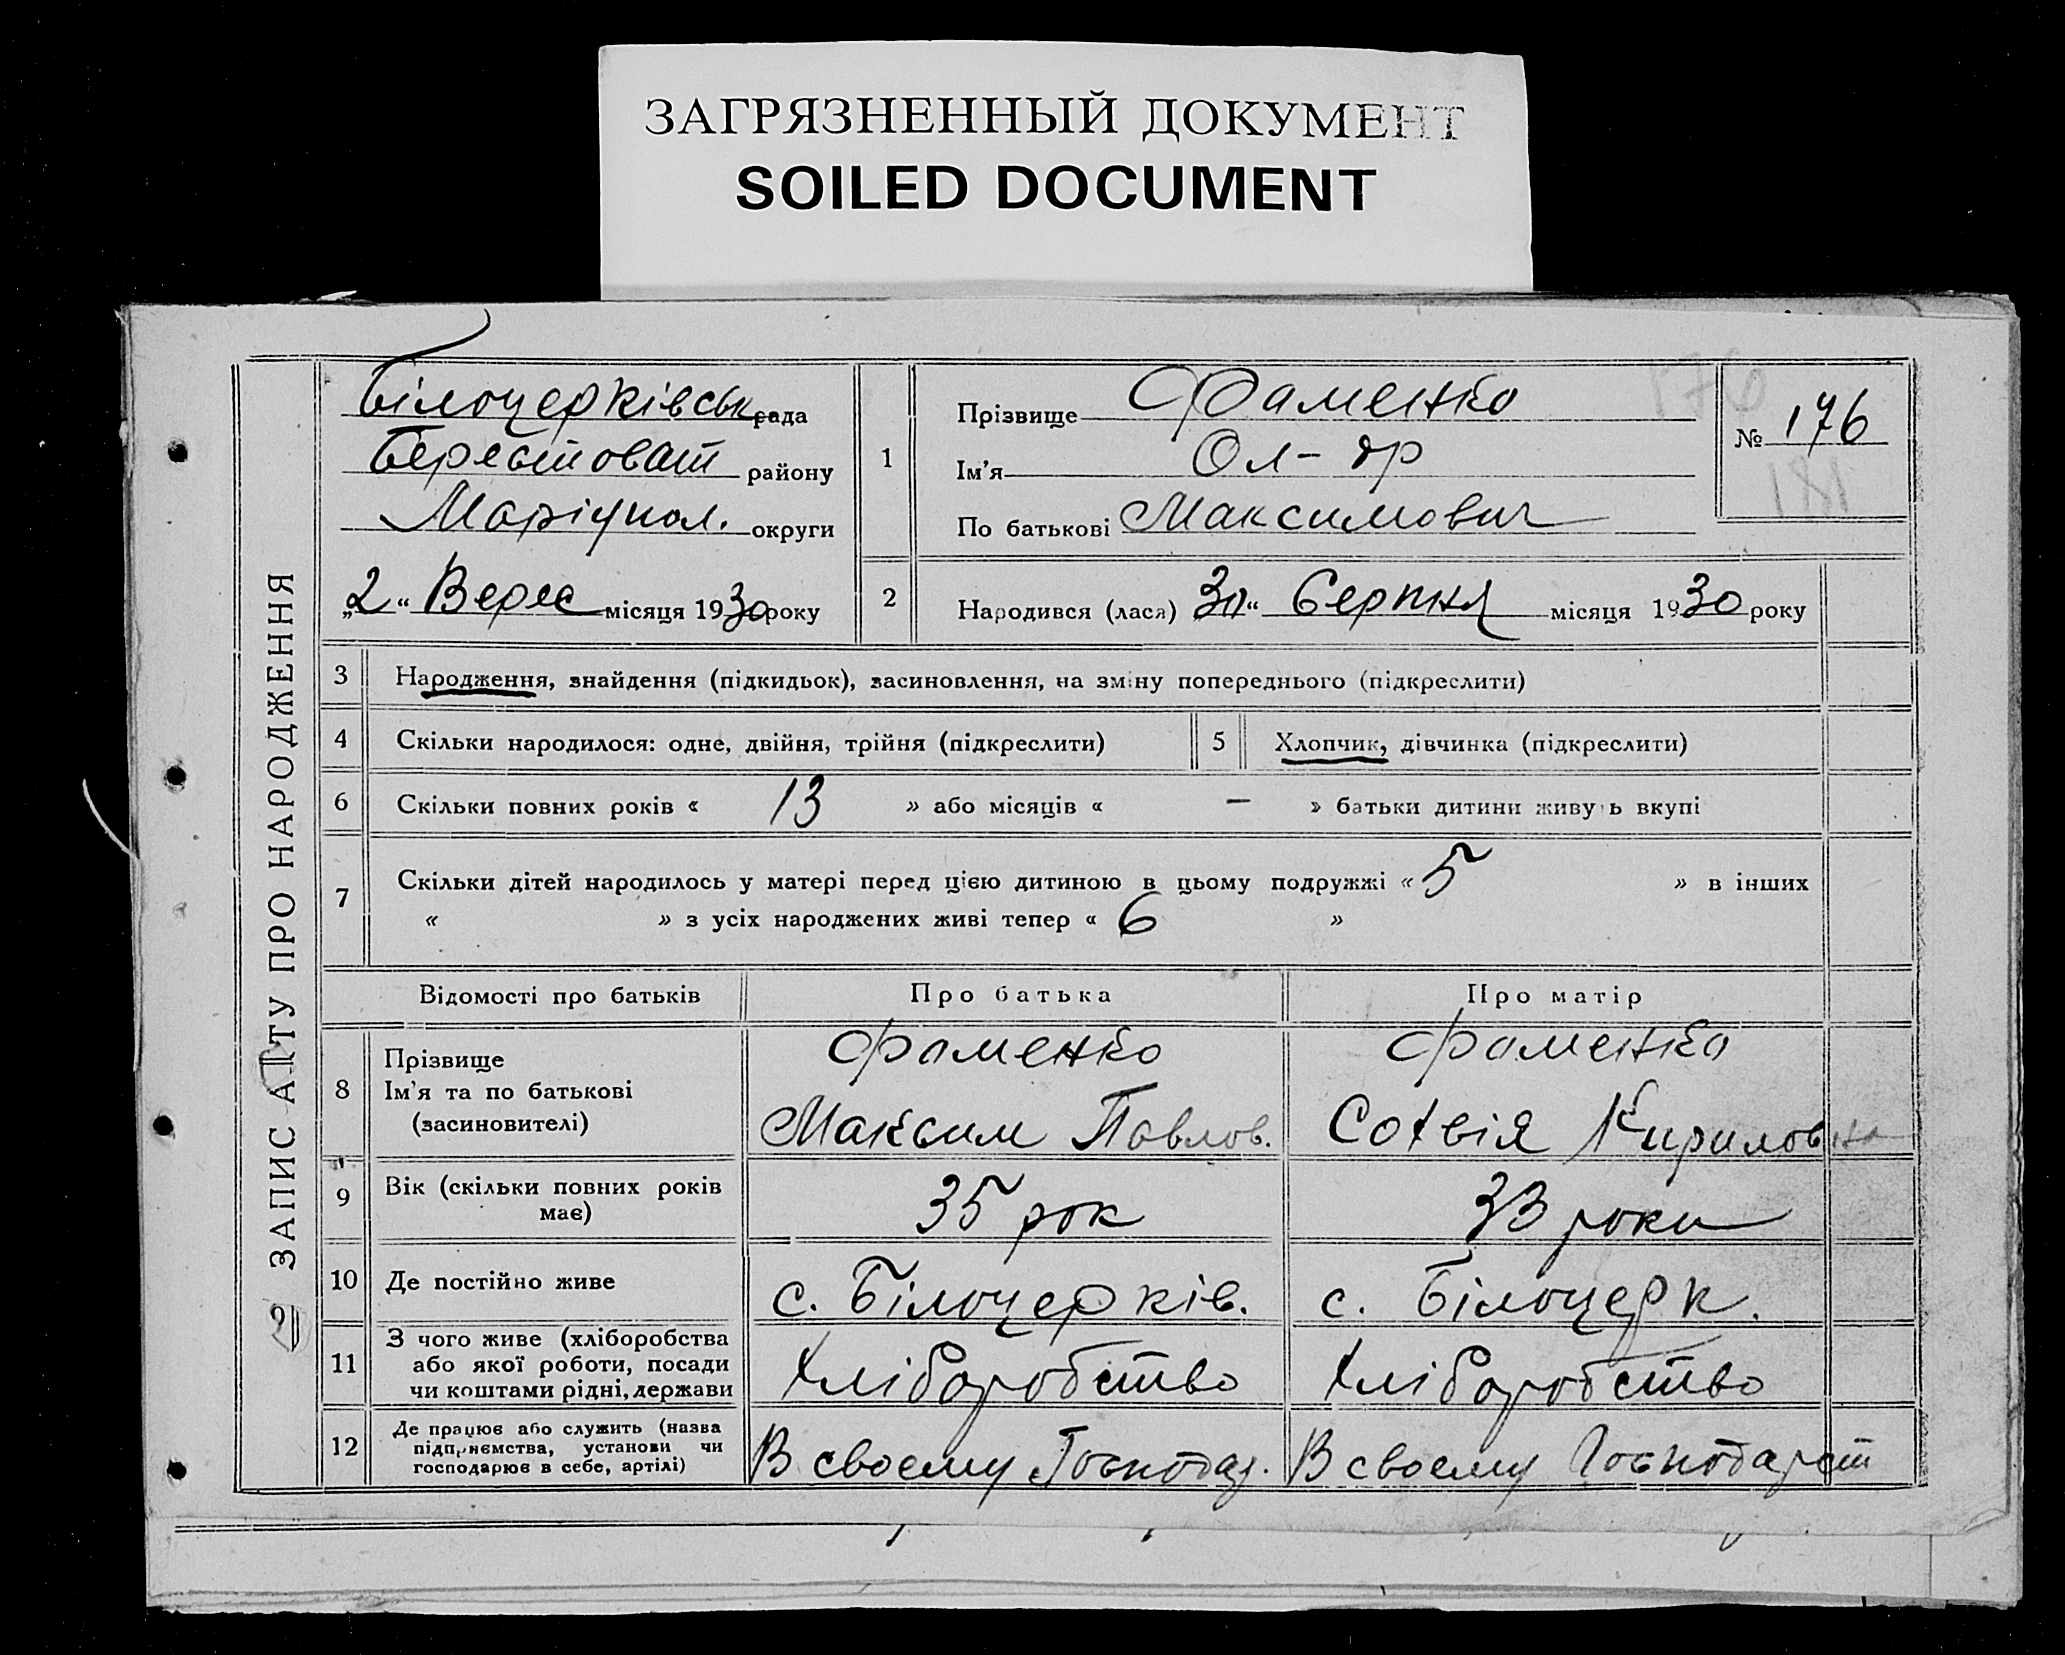 ЗАГРЯЗНЕННЫЙ ДОКУМЕНТ
SOILED DOCUMENT
ЗАПИС АКТУ ПРО НАРОДЖЕННЯ
Білоцерківськ рада
Берестоват району
Маріупол. округи
„2“ Верес місяця 1930 року
1
Прізвище Фоменко
Ім'я Ол-др
По батькові Максимович
176
№ 176
181
2 Народився (лася) 30“ Серпня місяця 1930 року
3 Народження, знайдення (підкидьок), засиновлення, на зміну попереднього (підкреслити)
4 Скільки народилося: одне, двійня, трійня (підкреслити) 5 Хлопчик, дівчинка (підкреслити)
6 Скільки повних років « 13 » або місяців « — » батьки дитини живуть вкупі
7 Скільки дітей народилось у матері перед цією дитиною в цьому подружжі « 5 » в інших
« » з усіх народжених живі тепер « 6 »
Відомості про батьків Про батька Про матір
8 Прізвище Фоменко Фоменко
Ім'я та по батькові
(засиновителі) Максим Павлов. Кириловна
9 Вік (скільки повних років має) 35 рок 33 роки
10 Де постійно живе с. Білоцерків. с. Білоцерк.
11 З чого живе (хліборобства
або якої роботи, посади
чи коштами рідні, держави Хліборобство Хліборобство
12 Де працює або служить (назва
підприємства, установи чи
господарює в себе, артілі) В своему Господар. В своему Господарст